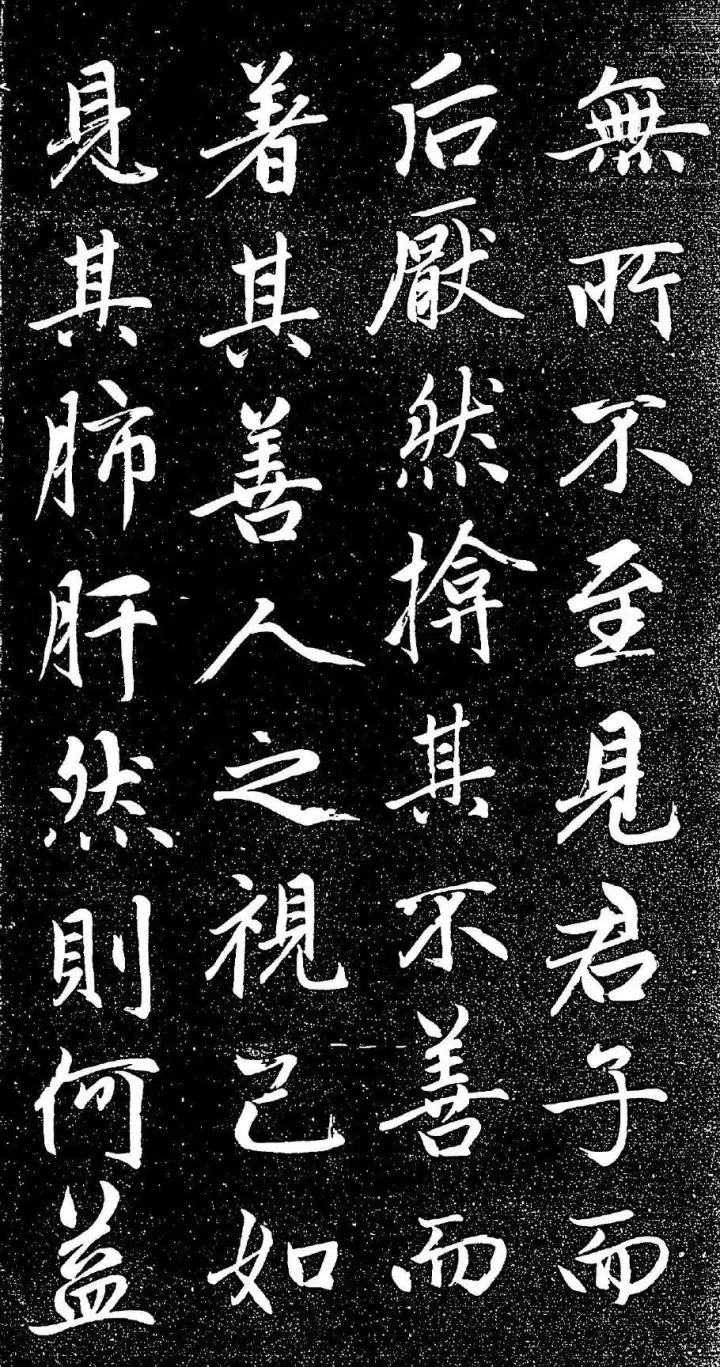 無所不至見君子而
后厭然揜其不善而
著其善人之視己如
見其肺肝然則何益